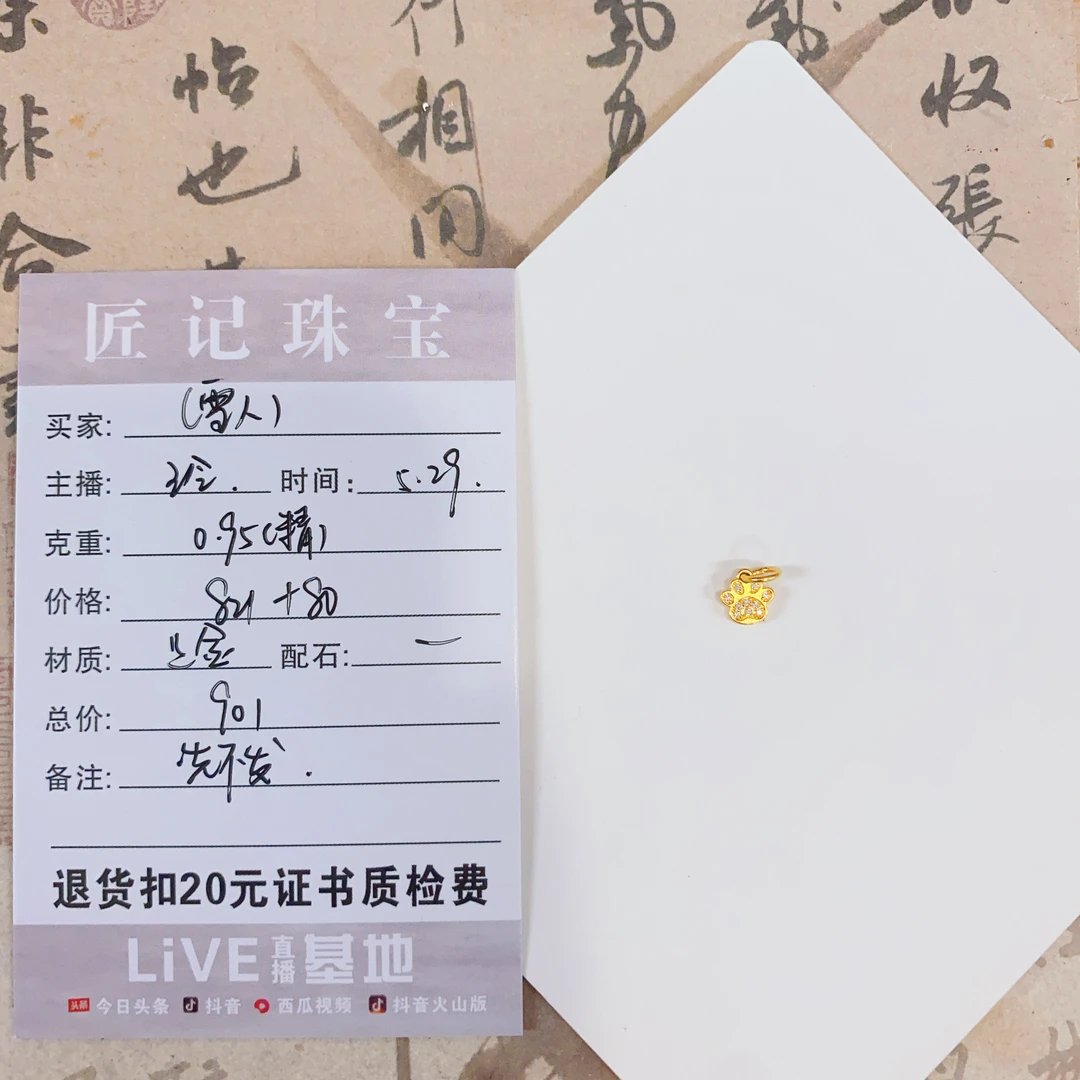 帖
也
相
间
收
張
非
合
匠记珠宝
买家: (雪人)
主播: 时间: 5.29.
克重: 0.95(精)
价格: 821+80
材质: 金 配石: 一
总价: 901
备注: 先不发.
退货扣20元证书质检费
LiVE直播基地
头条 今日头条 抖音 西瓜视频 抖音火山版